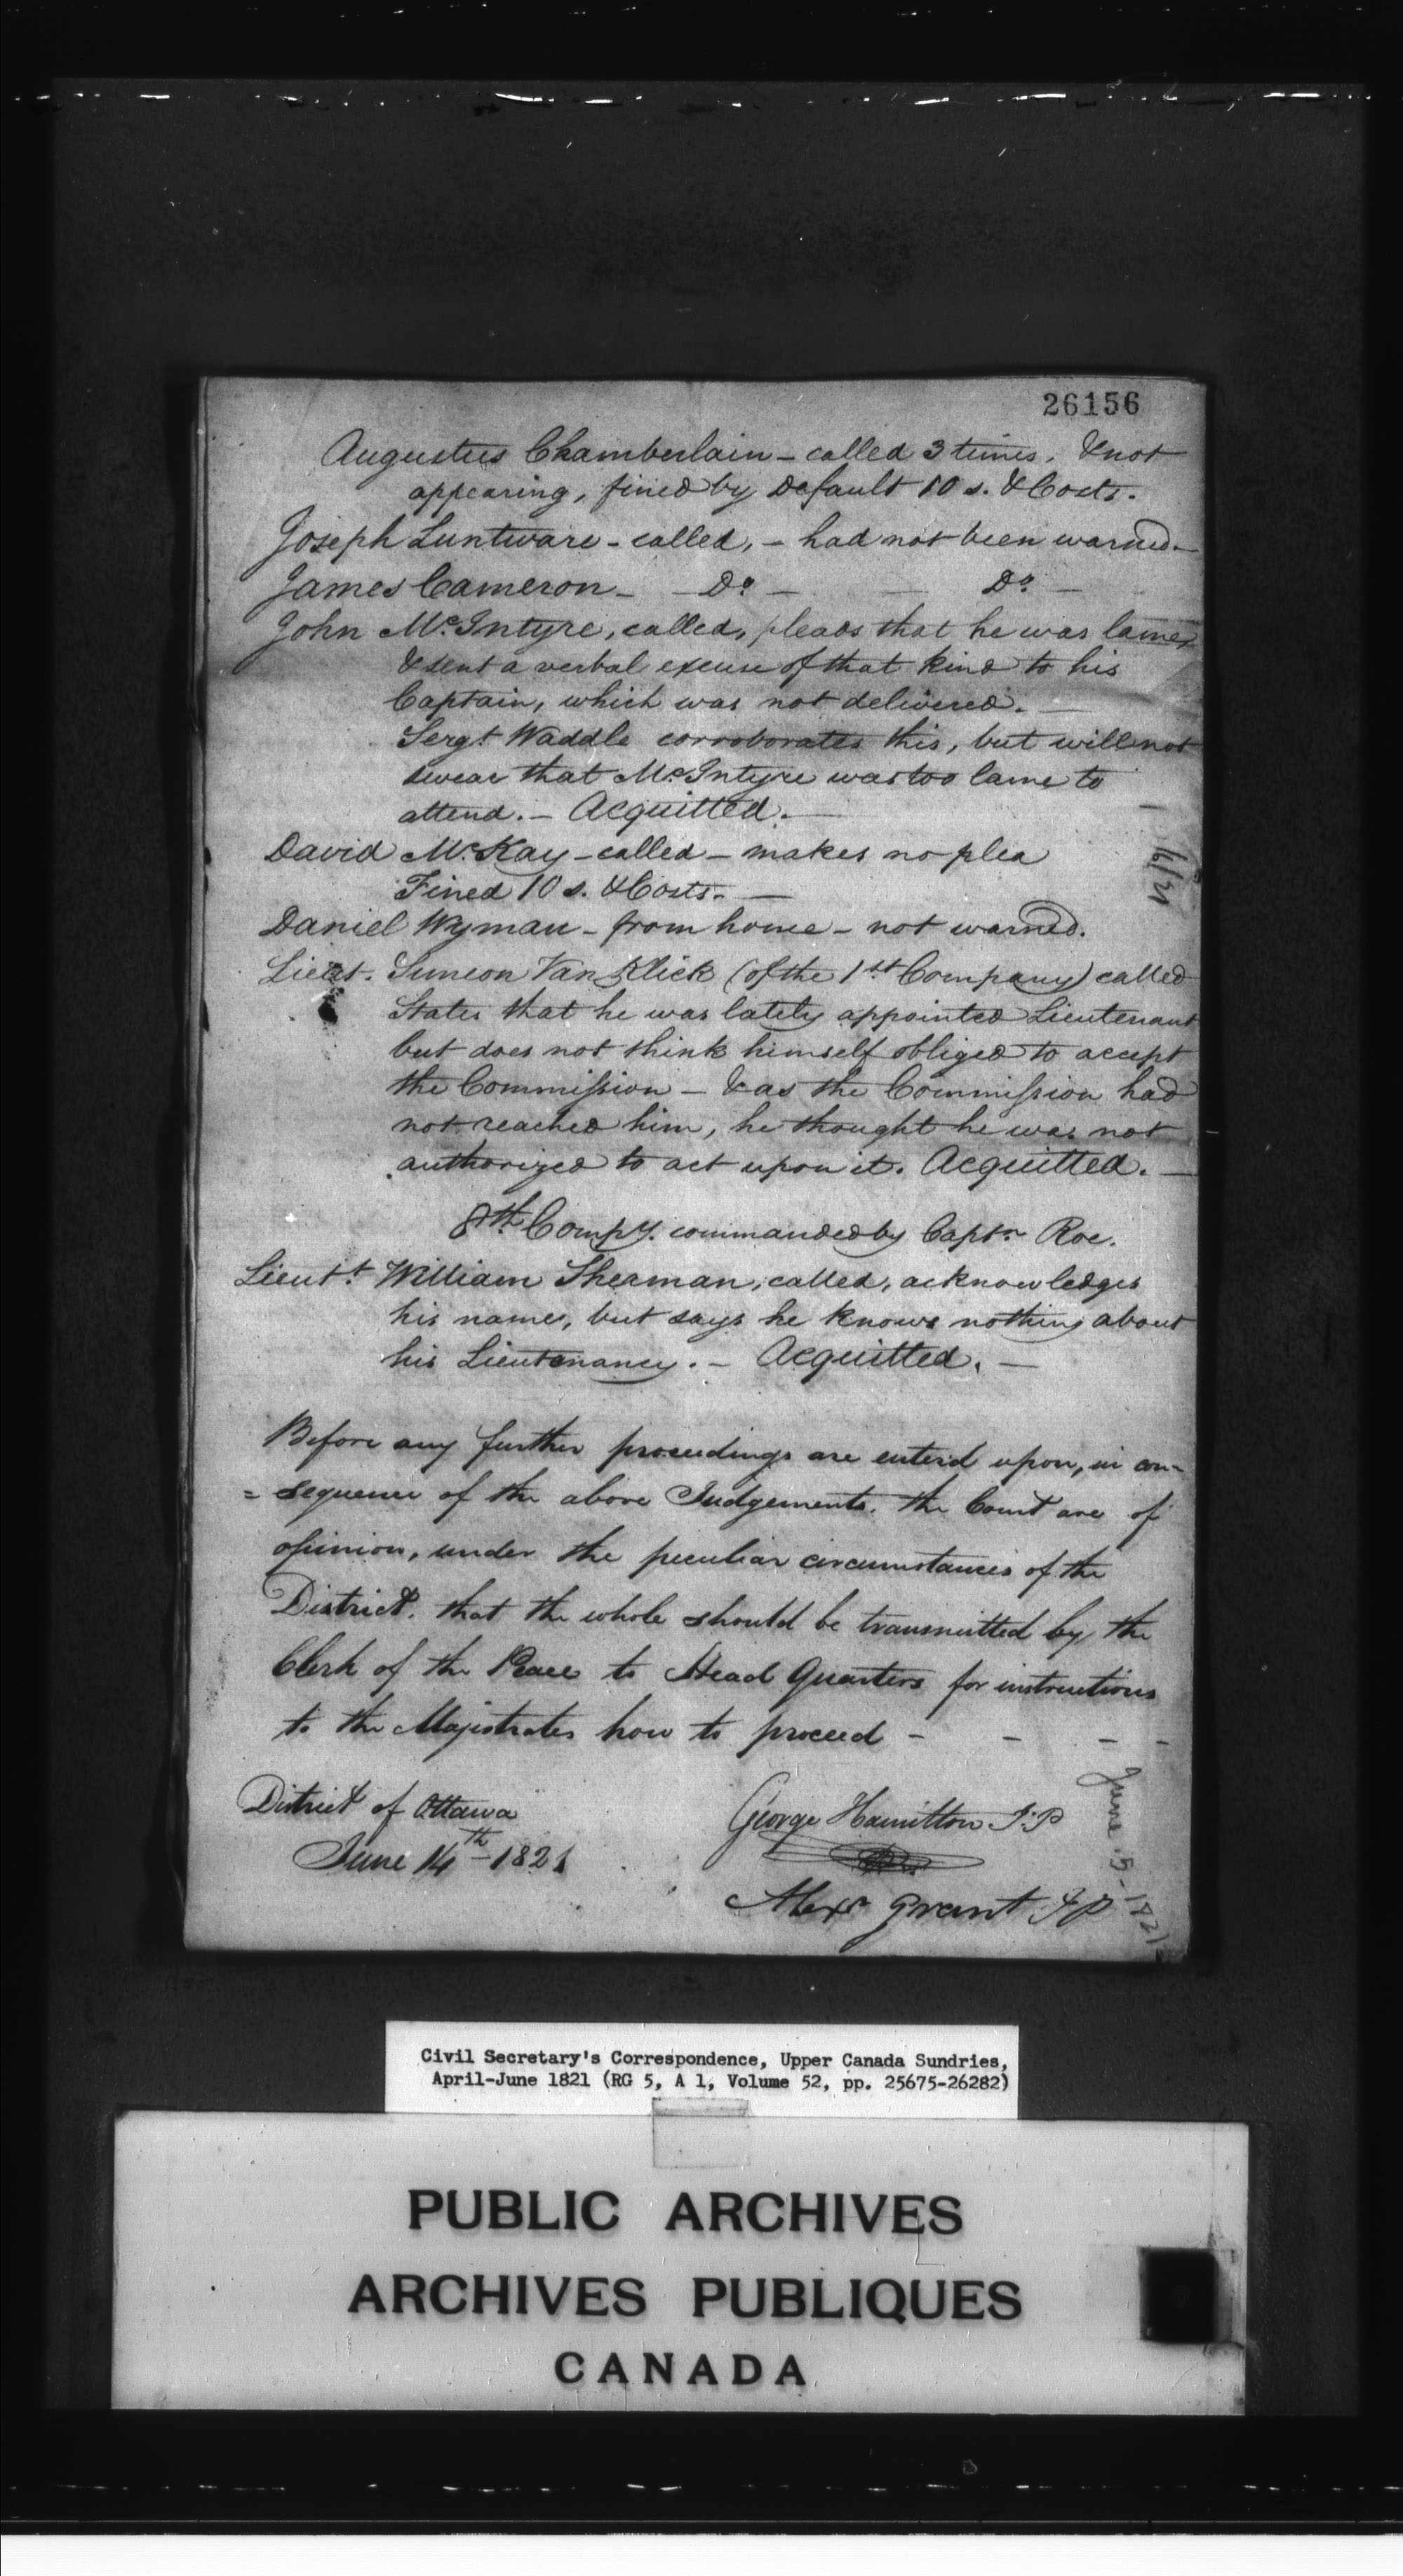 26156
Augustus Chamberlain - called 3 times, & not
appearing, fined by Default 10 s. & Costs.
Joseph Luntware - called, - had not been warned -
James Cameron - - Do - - Do. -
John McIntyre, called, pleads that he was lame,
& sent a verbal excuse of that kind to his
Captain, which was not delivered. -
Sergt Waddle corroborates this, but will not
swear that McIntyre was too lame to
attend. - Acquitted. -
David McKay - called - makes no plea
Fined 10 s. & Costs. -
Daniel Wyman - from home - not warned.
Lieut. Simeon VanKlick (of the 1st Company) called
States that he was lately appointed Lieutenant
but does not think himself obliged to accept
the Commission - & as the Commission had
not reached him, he thought he was not
authorized to act upon it. Acquitted. -
8th Compy. commanded by Captn Roe.
Lieutt. William Sherman, called, acknowledges
his name, but says he knows nothing about
his Lieutenancy. - Acquitted. -
Before any further proceedings are enterd upon, in con-
= sequence of the above Judgements, the Court are of
opinion, under the peculiar circumstances of the
District, that the whole should be transmitted by the
Clerk of the Peace to Head Quarters for instructions
to the Majistrates how to proceed - - - -
District of Ottawa
June 14th - 1821
George Hamilton J.P
Alexr Grant JP
June 15 - 1821
Civil Secretary's Correspondence, Upper Canada Sundries,
April-June 1821 (RG 5, A 1, Volume 52, pp. 25675-26282)
PUBLIC ARCHIVES
ARCHIVES PUBLIQUES
CANADA